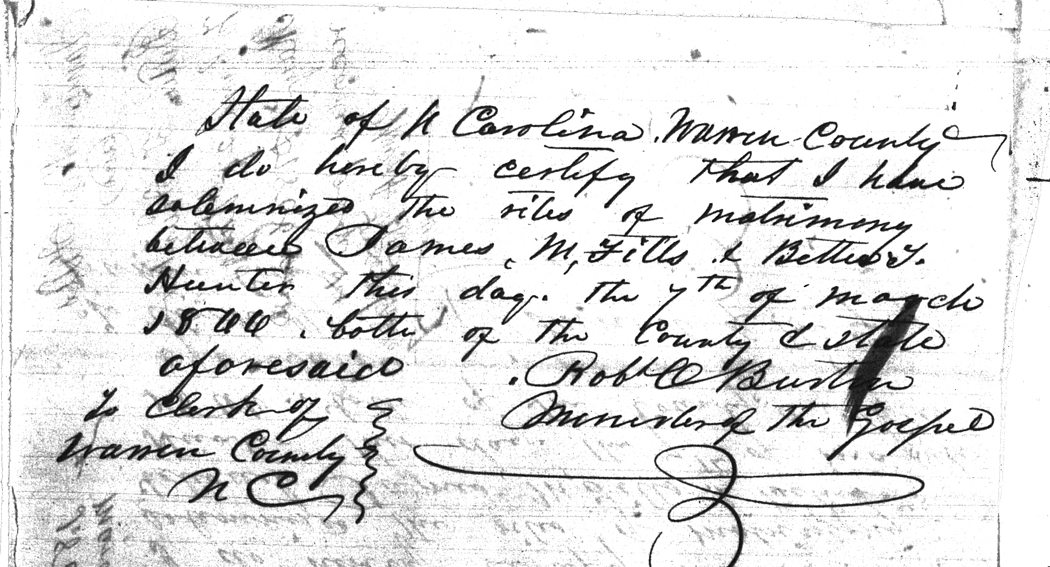 State of N Carolina. Warren County
I do hereby certify that I have
solemnized the rites of matrimony
between James, M, Fitts & Bettie J.
Hunter this day. the 7th of march
1866. both of the County & State
aforesaid . Robt O Burton
To Clerk of Minister of the Gospel
Warren County
N C